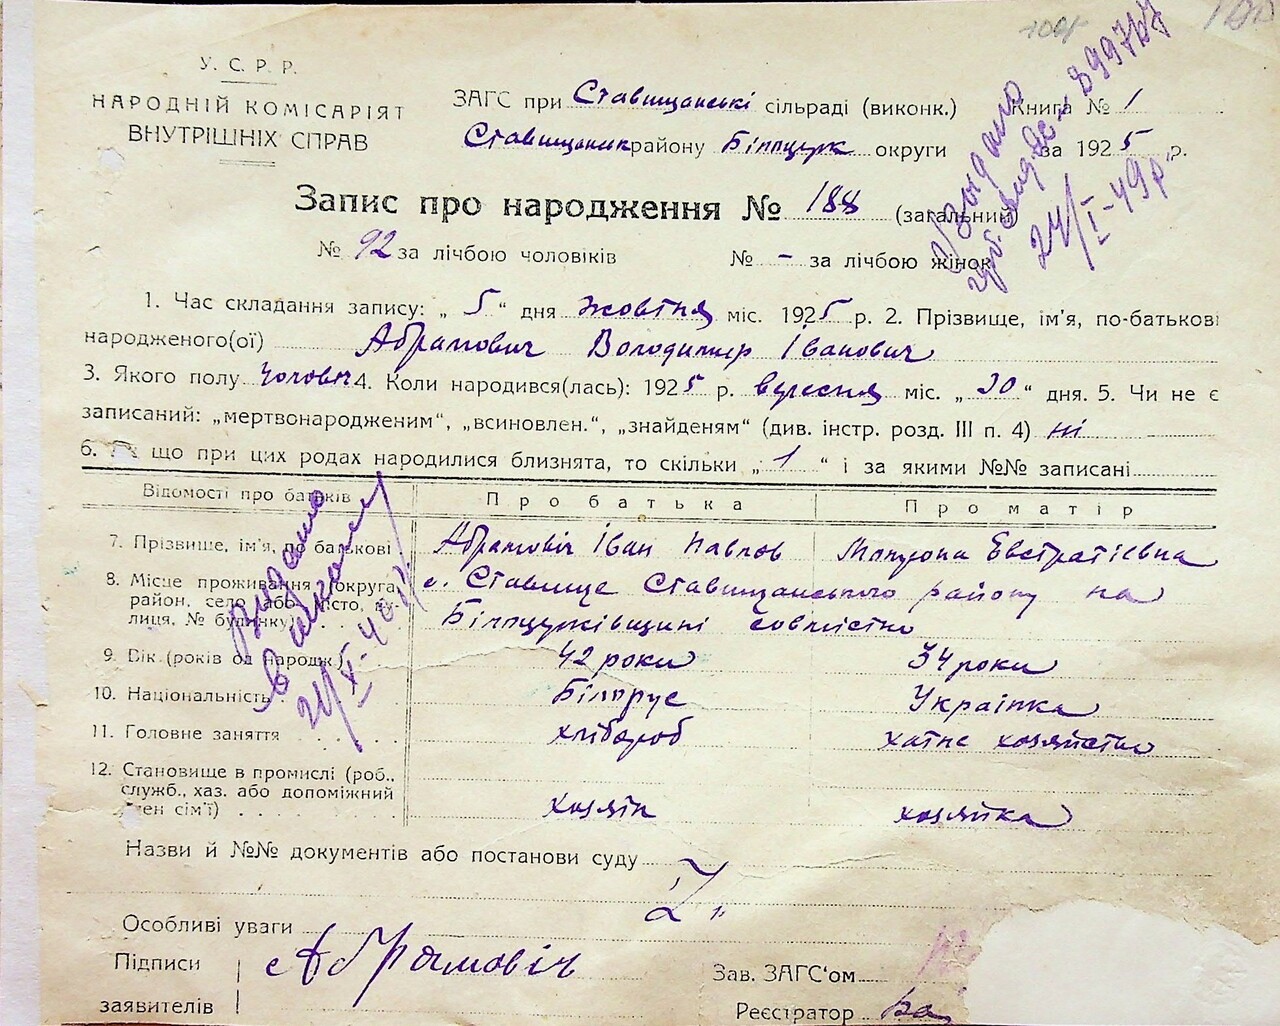 У. С. Р. Р.
НАРОДНІЙ КОМІСАРІЯТ
ВНУТРІШНІХ СПРАВ
ЗАГС при Ставищанські сільраді (виконк.) Книга № 1
Ставищанск району Білоцерк округи за 1925 р.
Запис про народження № 188 (загальним)
№ 92 за лічбою чоловіків № - за лічбою жінок
Выдано
899727
24/I-49р
1. Час складання запису: „ 5 “ дня жовтня міс. 1925 р. 2. Прізвище, ім'я, по-батькові
народженого(ої) Абрамович Володимир Іванович
3. Якого полу чоловіч 4. Коли народився(лась): 1925 р. вересня міс. „ 30 “ дня. 5. Чи не є
записаний: „мертвонародженим“, „всиновлен.“, „знайденям“ (див. інстр. розд. III п. 4) ні
6. що при цих родах народилися близнята, то скільки „ 1 “ і за якими №№ записані
Відомості про батьків Про батька Про матір
7. Прізвище, ім'я, по батькові Абрамовіч Іван Павлов Мотрона Евстратієвна
8. Місце проживання (округа, район, село або місто, вулиця, № будинку) с. Ставище Ставищанського району на
Білоцерківщині совмістно
9. Вік (років од народж.) 42 роки 34 роки
10. Національність Білорус Українка
11. Головне заняття хлібороб хатне хозяйство
12. Становище в промислі (роб.,
служб., хаз. або допоміжний
член сім'ї) хозяїн хозяйка
видано
в школу
Назви й №№ документів або постанови суду
Особливі уваги
Підписи
заявителів Абрамовіч
Зав. ЗАГС‘ом
Реєстратор